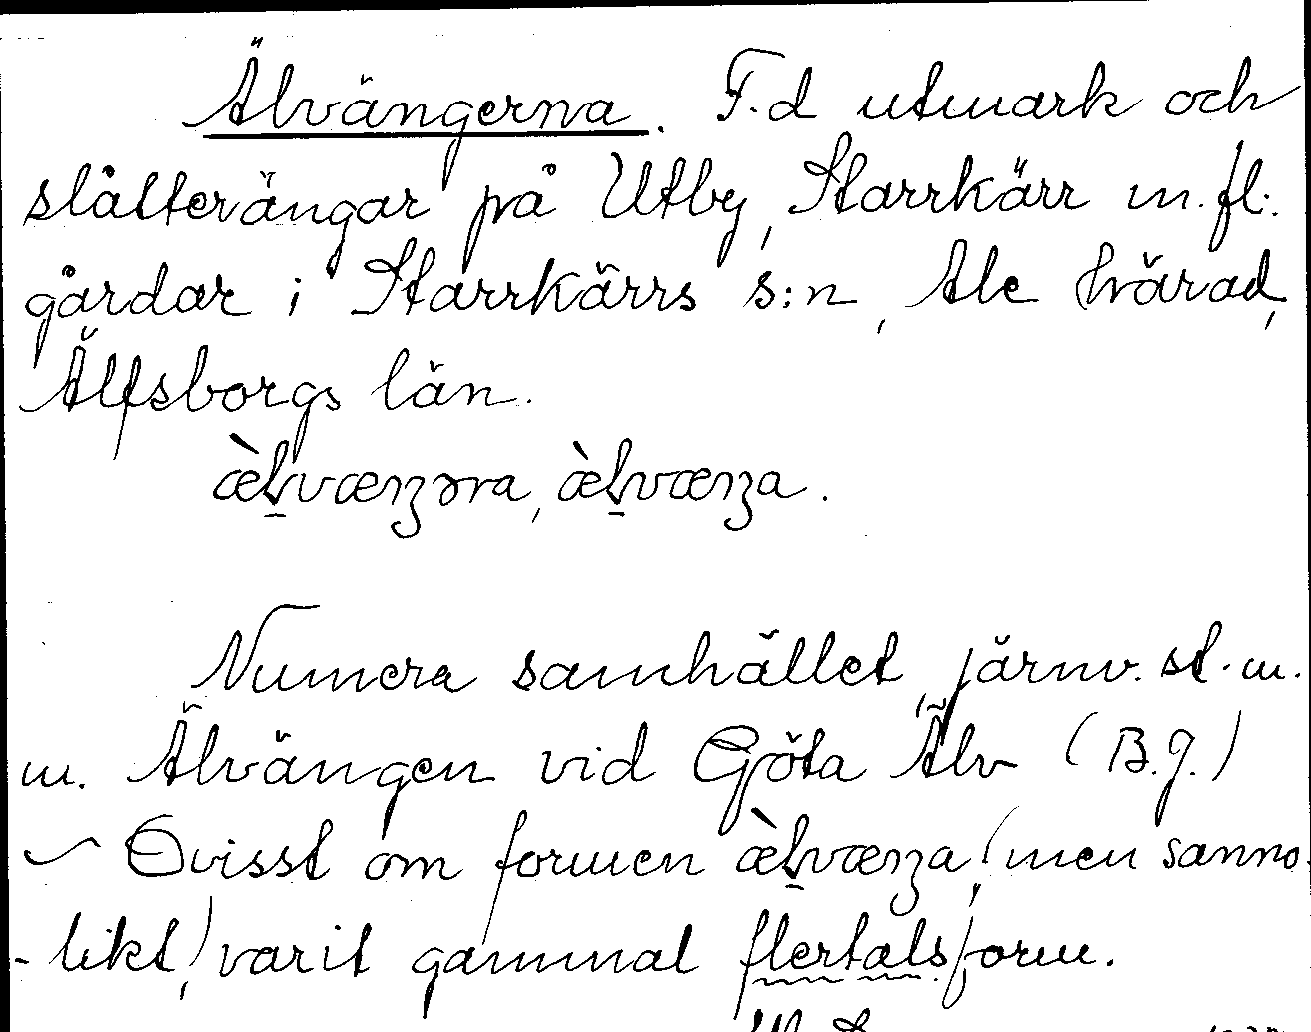 Älvängerna. F.d utmark och
slåtterängar på Utby, Starrkärr m.fl.
gårdar i Starrkärrs s:n, Ale härad,
Älfsborgs län.
æ̀ḷvænʒəra, æ̀ḷvænʒa.
Numera samhället, järnv. st. m.
m. Älvängen vid Göta Älv (B.J.)
Ovisst om formen æ̀ḷvænʒa, (men sanno-
-likt) varit gammal flertalsform.